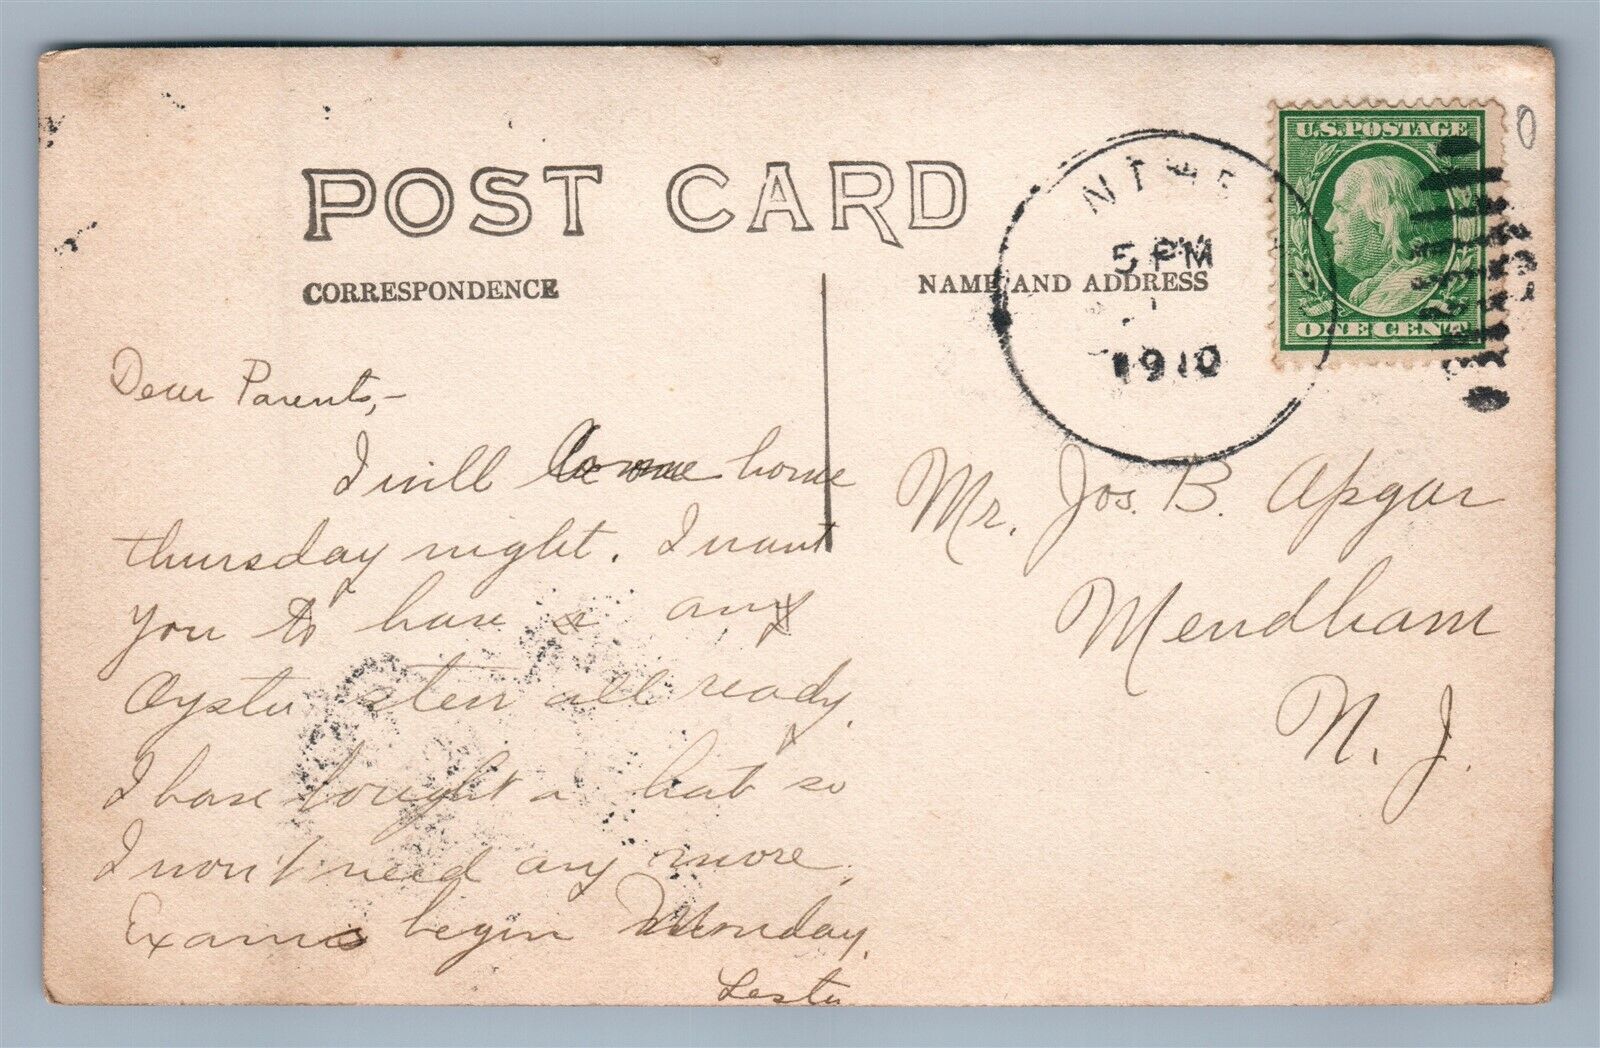 POST CARD
CORRESPONDENCE
NAME AND ADDRESS
U.S. POSTAGE
ONE CENT
5 PM
1910
Dear Parents,-
I will come home
thursday night. I want
you to have a any
Oyster stew all ready.
I have bought a hat so
I won't need any more.
Exams begin Monday.
Lester
Mr. Jos. B. Apgar
Mendham
N. J.
0